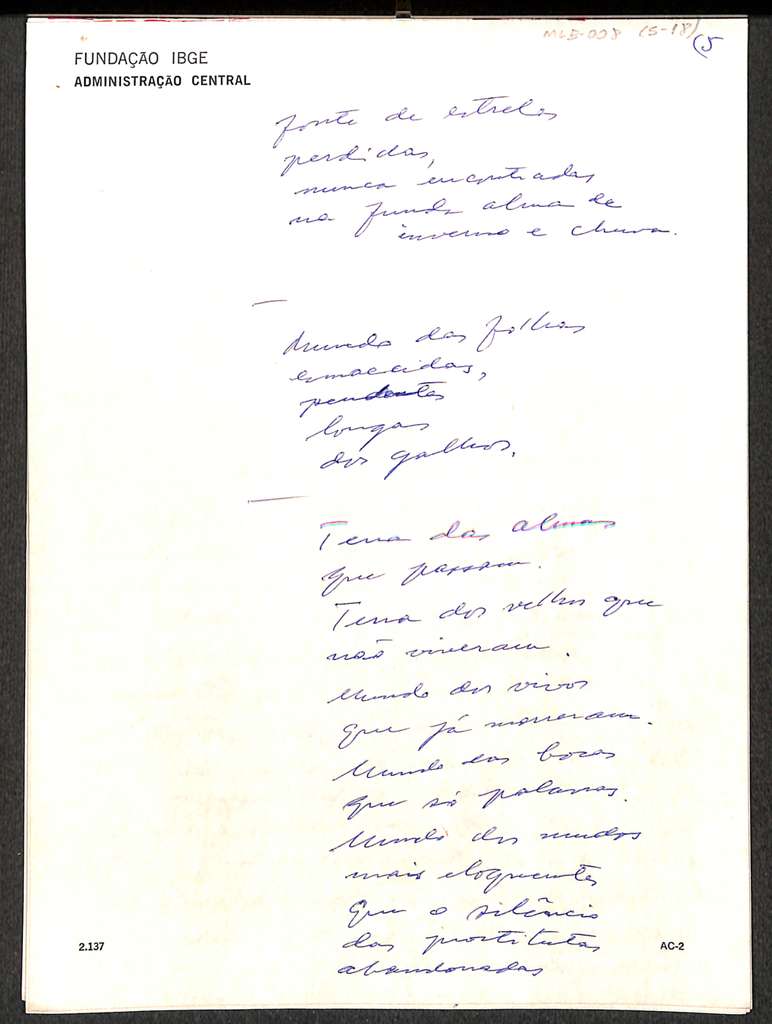 MLB-008 (5-18)
(5
FUNDAÇÃO IBGE
ADMINISTRAÇÃO CENTRAL
fonte de estrelas
perdidas,
nunca encontradas
na funda alma de
inverno e chuva.
Mundo das folhas
esmaecidas,
pendentes
longas
dos galhos.
Terra das almas
que passam.
Terra dos velhos que
não viveram.
Mundo dos vivos
que já morreram.
Mundo das bocas
que só palavras.
Mundo dos mudos
mais eloquentes
que o silêncio
das prostitutas
abandonadas
2.137
AC-2